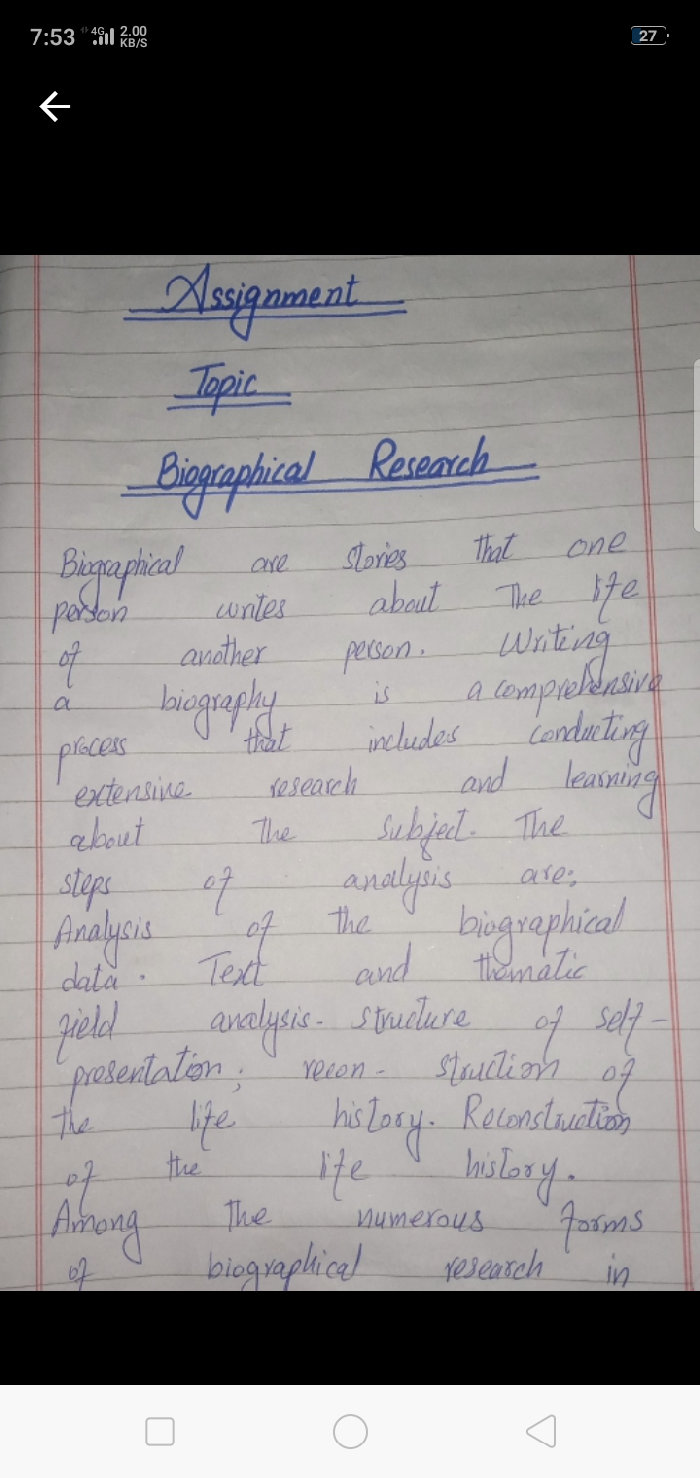 7:53 4G 2.00 KB/S 27
Assignment
Topic
Biographical Research
Biographical are stories that one
person writes about The life
of another person. Writing
a biography is a comprehensive
process that includes conducting
extensive research and learning
about The subject. The
steps of analysis are:
Analysis of the biographical
data. Text and thematic
field analysis. structure of self-
presentation; recon- struction of
the life history. Reconstruction
of the life history.
Among The numerous forms
of biographical research in